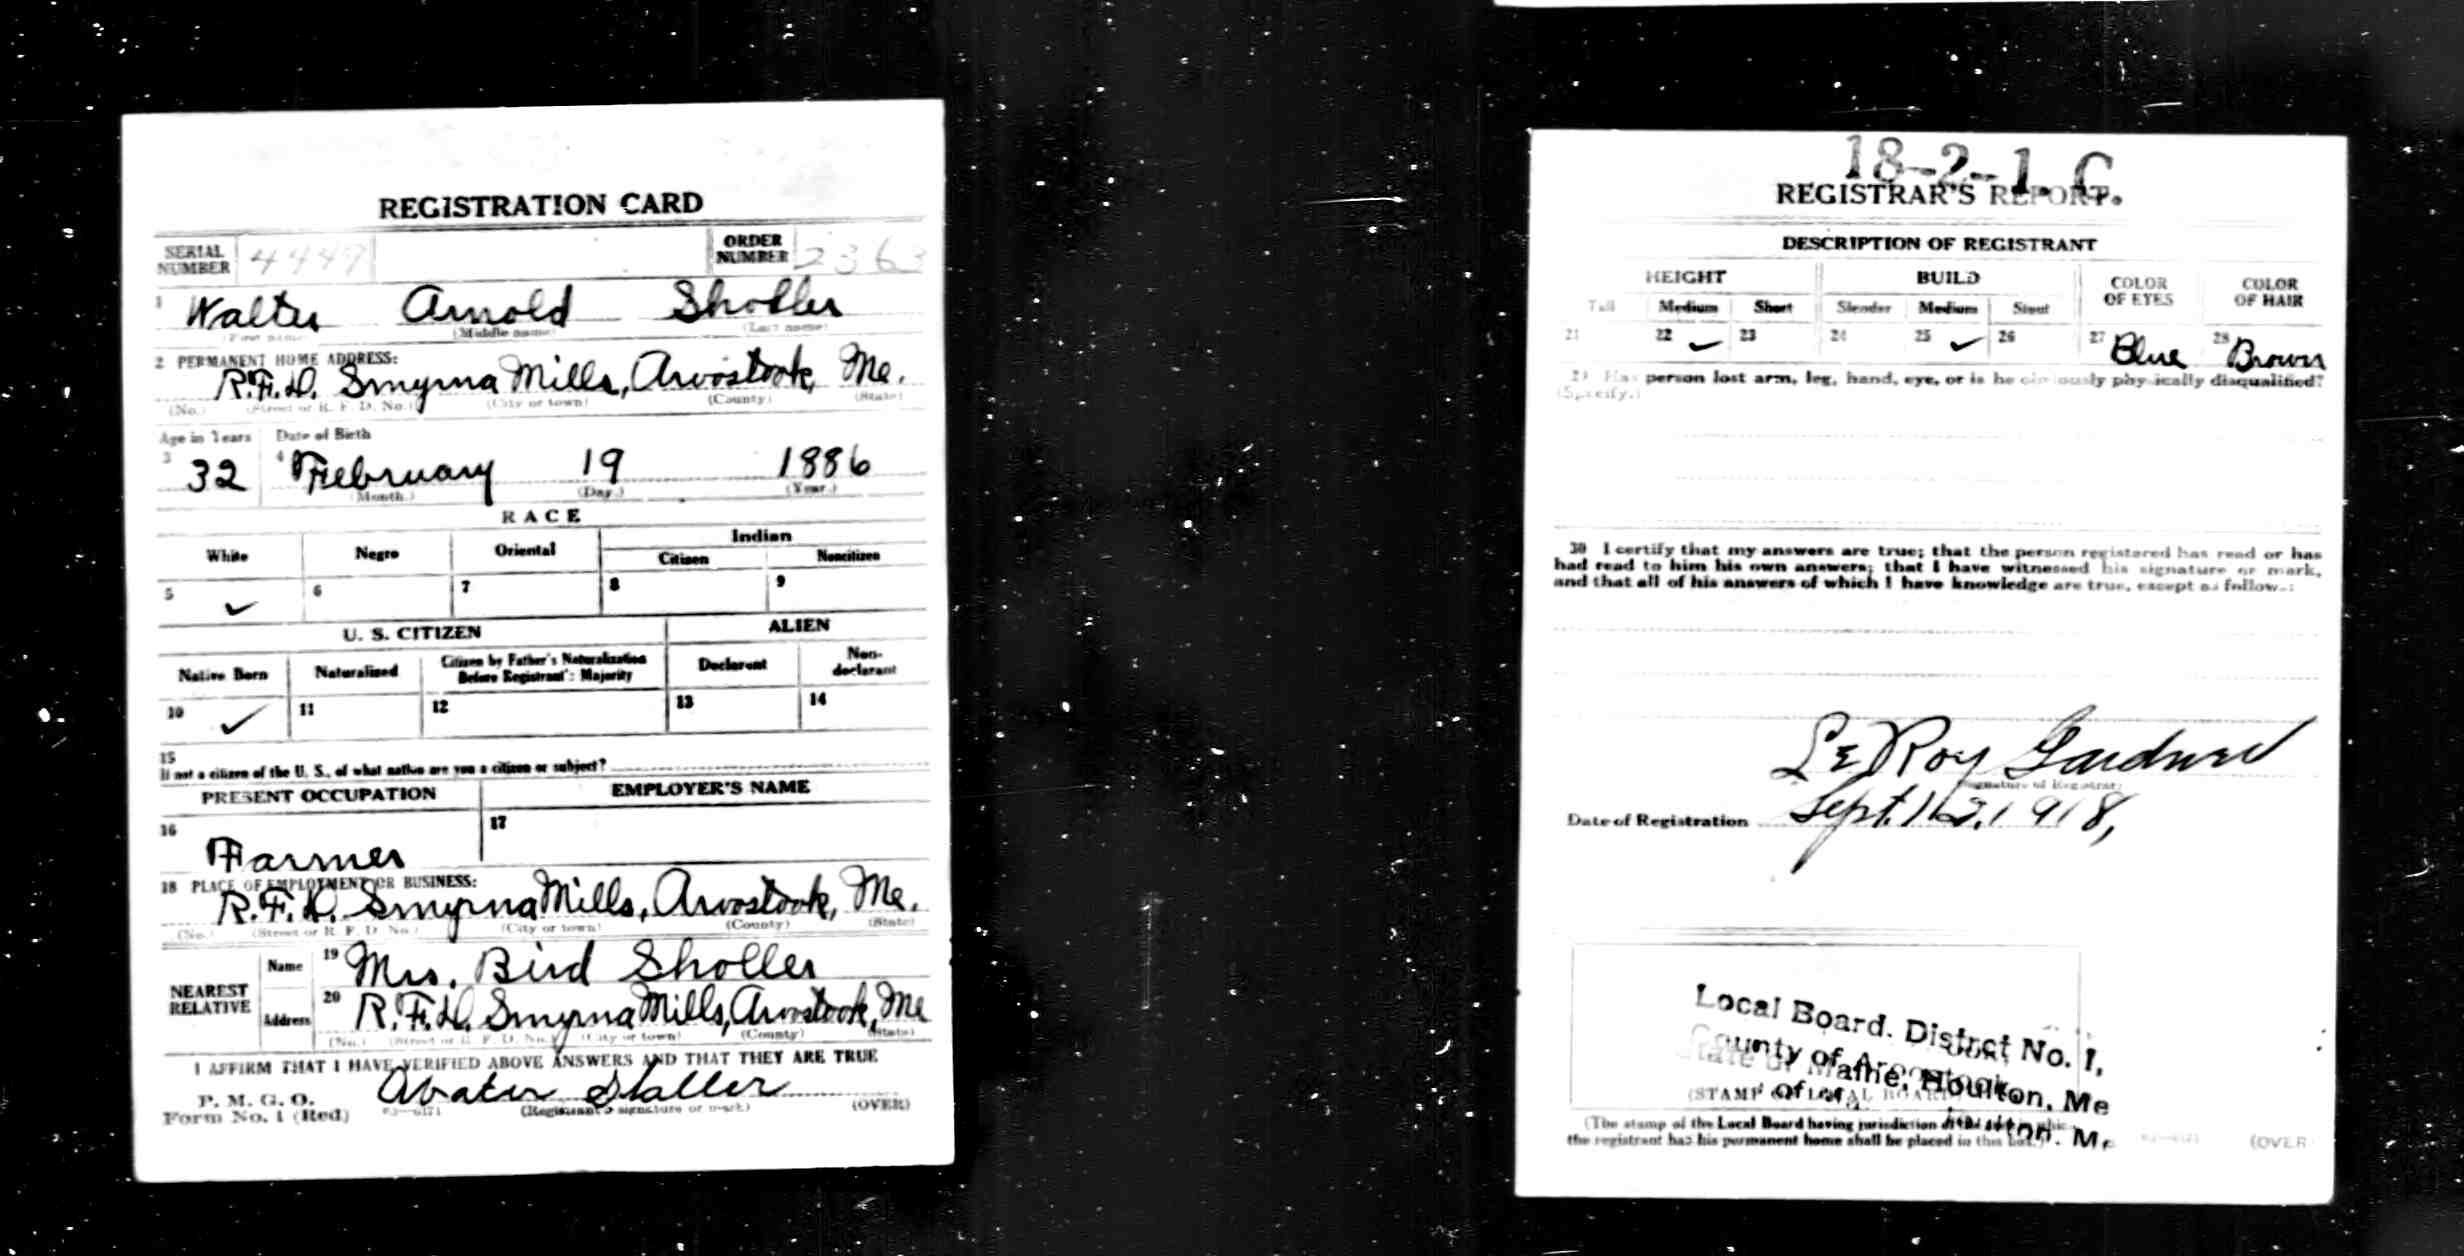 REGISTRATION CARD
SERIAL NUMBER 4449 ORDER NUMBER 2363
1 Walter Arnold Sholler
(First name) (Middle name) (Last name)
2 PERMANENT HOME ADDRESS:
R.F.D. Smyrna Mills, Aroostook, Me.
(No.) (Street or R. F. D. No.) (City or town) (County) (State)
Age in Years Date of Birth
3 32 4 February 19 1886
(Month.) (Day.) (Year.)
RACE
White Negro Oriental Indian
Citizen Noncitizen
5 ✓ 6 7 8 9
U. S. CITIZEN ALIEN
Native Born Naturalized Citizen by Father's Naturalization Before Registrant's Majority Declarant Non-declarant
10 ✓ 11 12 13 14
15
If not a citizen of the U. S., of what nation are you a citizen or subject?
PRESENT OCCUPATION EMPLOYER'S NAME
16 Farmer 17
18 PLACE OF EMPLOYMENT OR BUSINESS:
R.F.D. Smyrna Mills, Aroostook, Me.
(No.) (Street or R. F. D. No.) (City or town) (County) (State)
NEAREST RELATIVE
Name 19 Mrs. Bird Sholler
Address 20 R.F.D. Smyrna Mills, Aroostook, Me
(No.) (Street or R. F. D. No.) (City or town) (County) (State)
I AFFIRM THAT I HAVE VERIFIED ABOVE ANSWERS AND THAT THEY ARE TRUE
P. M. G. O.
Form No. 1 (Red) (Registrant's signature or mark) (OVER)
18-2-1. C.
REGISTRAR'S REPORT.
DESCRIPTION OF REGISTRANT
HEIGHT BUILD COLOR OF EYES COLOR OF HAIR
Tall Medium Short Slender Medium Stout
21 22 ✓ 23 24 25 ✓ 26 27 Blue 28 Brown
29 Has person lost arm, leg, hand, eye, or is he obviously physically disqualified?
(Specify.)
30 I certify that my answers are true; that the person registered has read or has
had read to him his own answers; that I have witnessed his signature or mark,
and that all of his answers of which I have knowledge are true, except as follows:
LeRoy Gardner
(Signature of Registrar)
Date of Registration Sept. 12, 1918,
Local Board. Distrct No. 1,
County of Aroostook
State of Maine, Houlton, Me
(STAMP OF LOCAL BOARD)
(The stamp of the Local Board having jurisdiction of the area in which
the registrant has his permanent home shall be placed in this box.)
(OVER